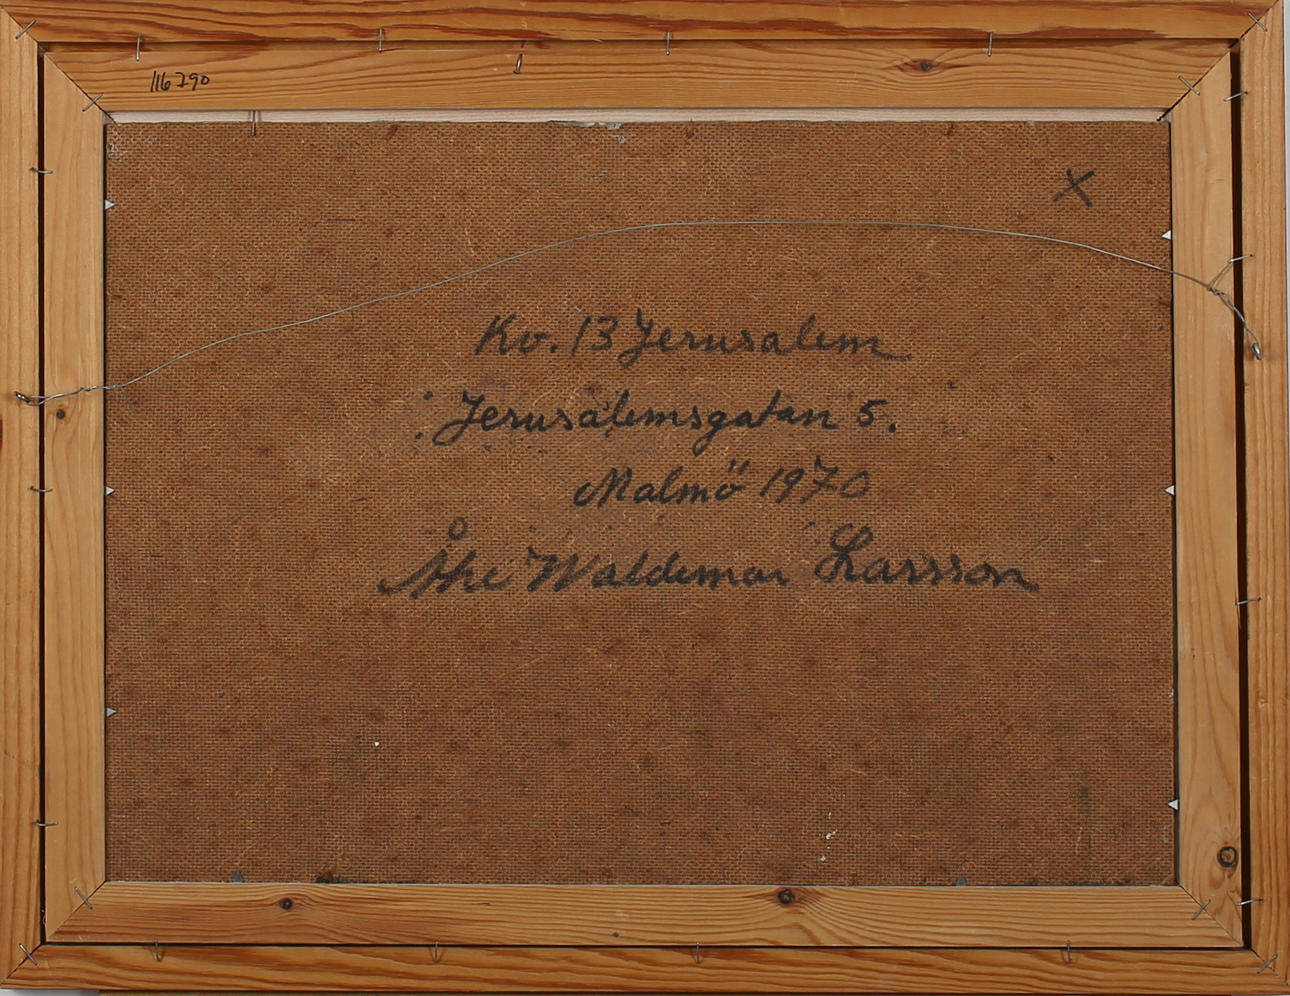 116790
X
Kv. 13 Jerusalem
Jerusalemsgatan 5.
Malmö 1970
Åke Waldemar Larsson